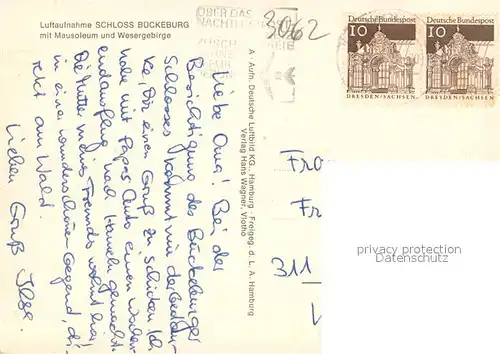 Luftaufnahme SCHLOSS BÜCKEBURG
mit Mausoleum und Wesergebirge
ÜBER DAS
3062
Deutsche Bundespost
10
DRESDEN/SACHSEN
Deutsche Bundespost
10
DRESDEN/SACHSEN
Liebe Oma! Bei der
Besichtigung des Bückeburger
Schlosses kommt mir der Gedan-
ke, Dir einen Gruß zu schicken. Ich
habe mit Papas Auto einen Wochen-
endausflug nach Hameln gemacht.
Die Mutter meines Freundes wohnt hier
in einer wunderschönen Gegend, di-
rekt am Wald.
Lieben Gruß Ilse.
A - Aufn. Deutsche Luftbild KG., Hamburg Freigeg. d. L. A. Hamburg
Verlag Hans Wagner, Vlotho
Fra
Fr
311
privacy protection